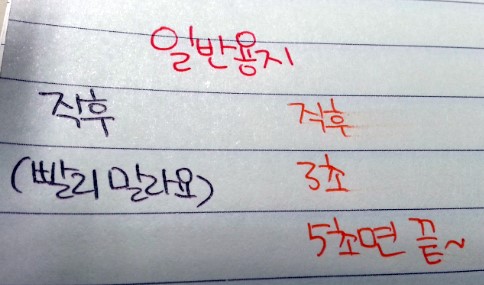 일반용지
직후 직후
(빨리 말라요) 3초
5초면 끝~